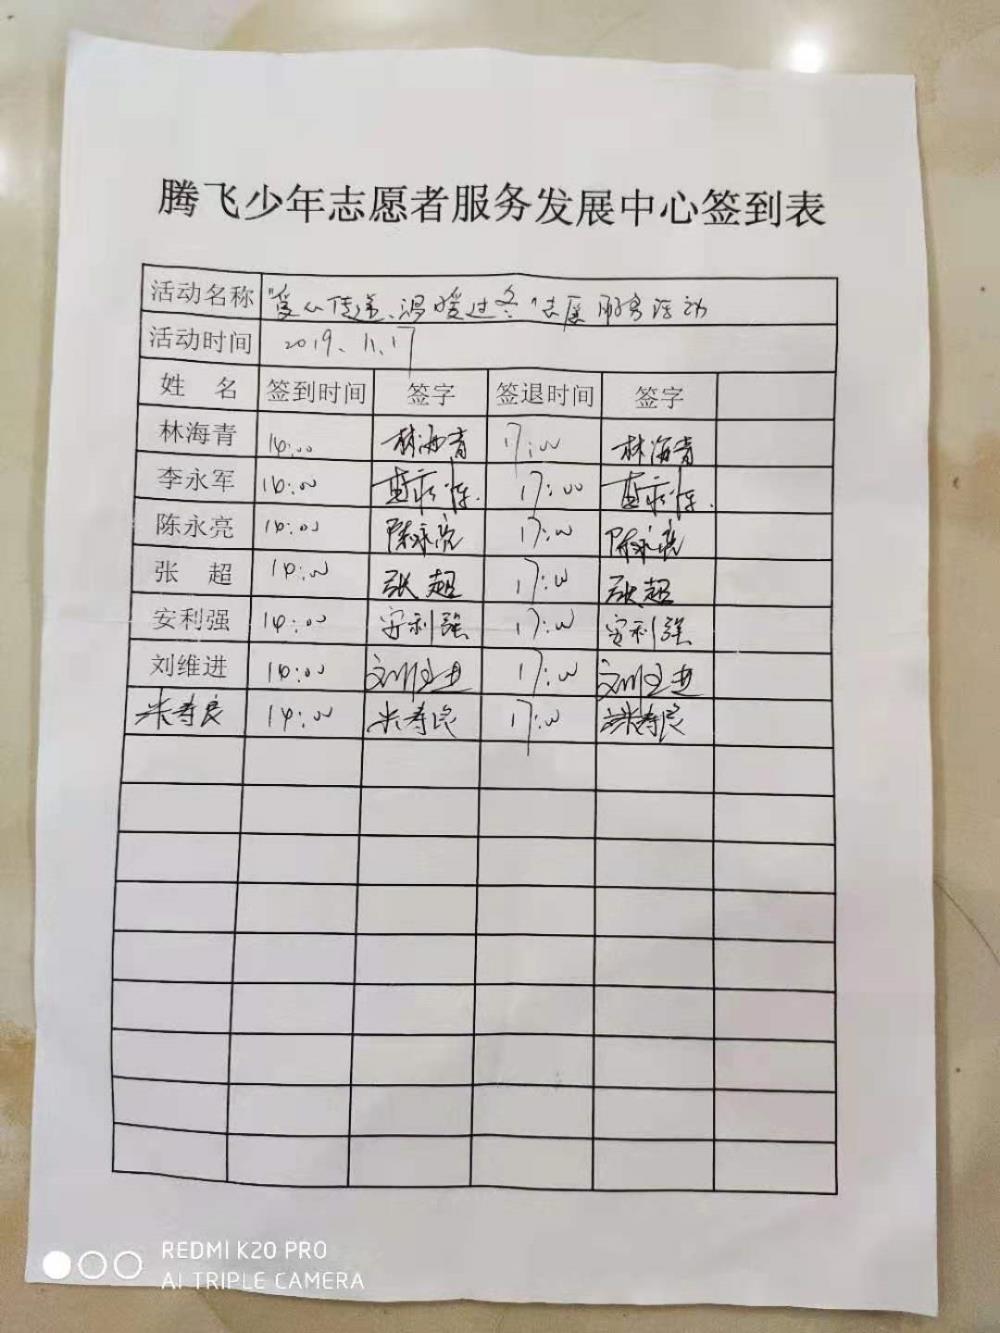 腾飞少年志愿者服务发展中心签到表
活动名称 "爱心传递、温暖过冬"志愿服务活动
活动时间 2019.11.17
姓 名 签到时间 签字 签退时间 签字
林海青 14:00 林海青 17:00 林海青
李永军 14:00 17:00
陈永亮 14:00 陈永亮 17:00 陈永亮
张 超 14:00 张超 17:00 张超
安利强 14:00 安利强 17:00 安利强
刘维进 14:00 刘维进 17:00 刘维进
米寿良 14:00 米寿良 17:00 米寿良
REDMI K20 PRO
AI TRIPLE CAMERA